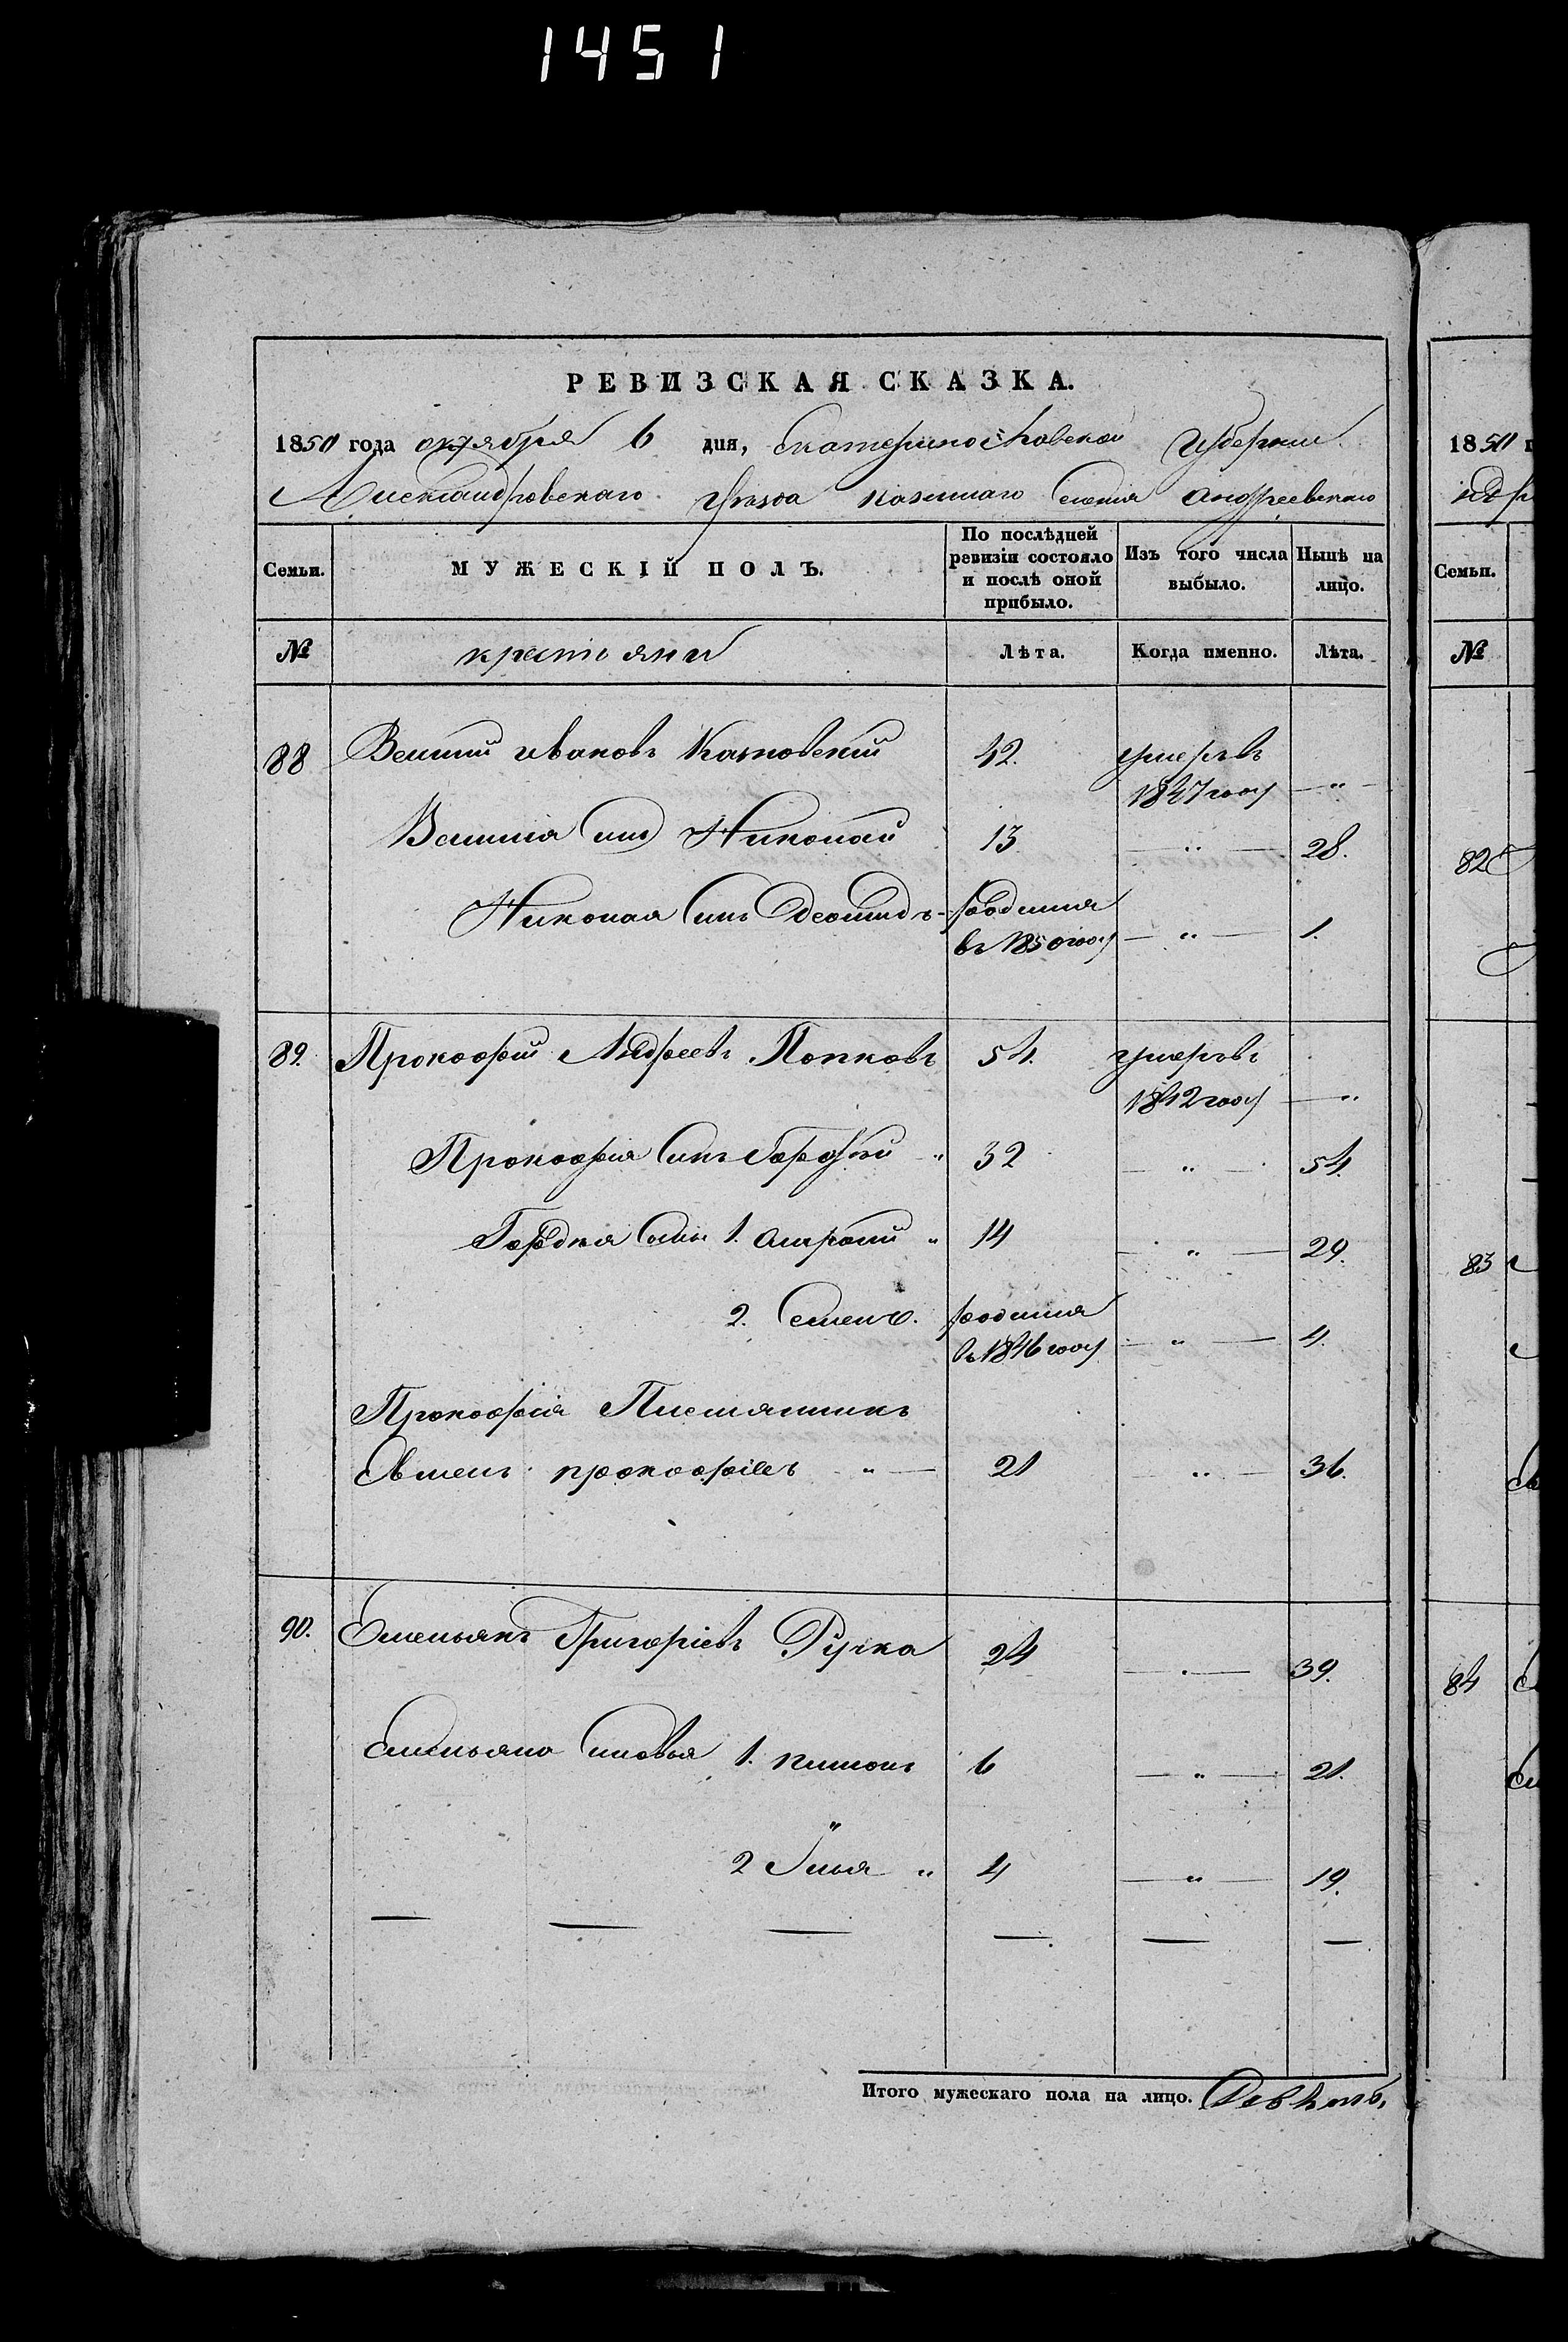 1451
РЕВИЗСКАЯ СКАЗКА.
1850 года октября 6 дня, Екатеринославской Губернии
Александровскаго Уѣзда казеннаго селенія Андреевскаго
Семьи. МУЖЕСКІЙ ПОЛЪ. По послѣдней ревизіи состояло и послѣ оной прибыло. Изъ того числа выбыло. Нынѣ на лицо.
№ крестьяни Лѣта. Когда именно. Лѣта.
88 Ивановъ 42. умеръ въ
1847 году — „ —
Сын Николай 13 — „ — 28.
Николая Сынъ Леонидъ - родился
въ 1850 году — „ — 1.
89. Прокофий Андреевъ Попковъ 54. умеръ въ
1842 году — „
Прокофия Сынъ Гордѣй „ 32 — „ — 54.
Гордѣя Сыны 1. „ 14 — „ — 29.
2. Семенъ. родился
въ 1846 году — „ — 4.
Прокофія Племянникъ
прокофіевъ „ — 21 — „ — 36.
90. Емельянъ Григоріевъ Ручка 24 — „ — 39.
Емельяна Сыновья 1. 6 — „ — 21.
2 Илья „ 4 — „ — 19.
Итого мужескаго пола на лицо. Девять,
1850 г
Семьи.
№
82
83
84